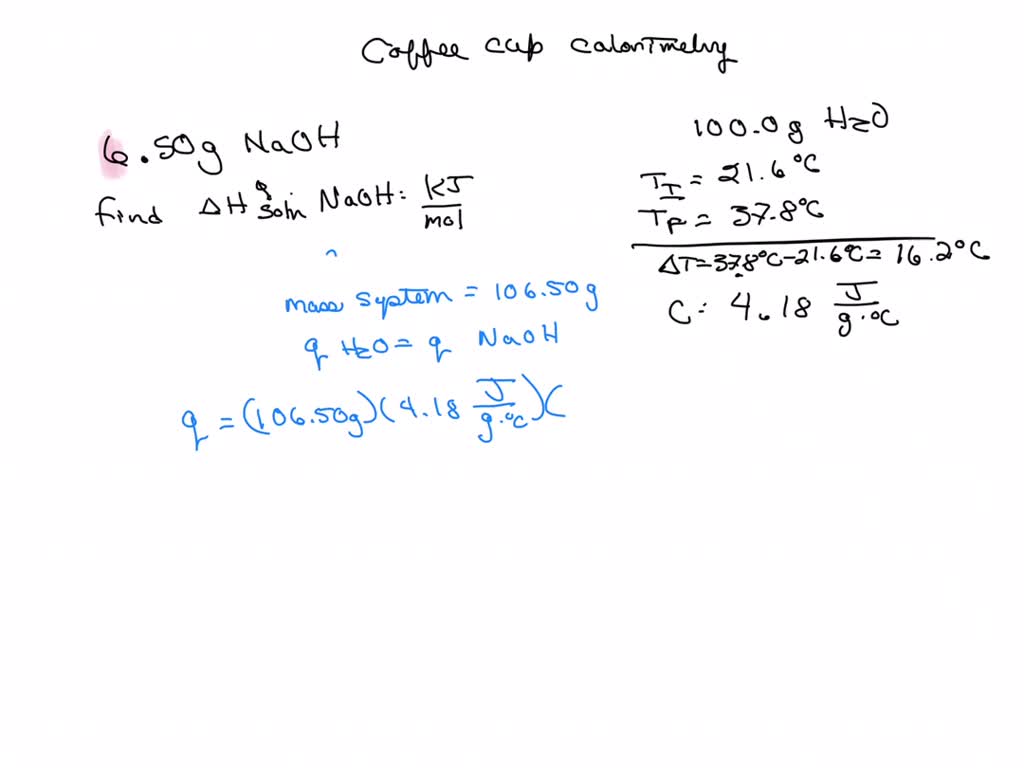 Coffee cup calorimetry
6.50g NaOH
find ΔH soln NaOH: kJ/mol
100.0g H2O
TI = 21.6°C
TF = 37.8°C
ΔT=37.8°C-21.6°C= 16.2°C
C: 4.18 J/g·°C
mass system = 106.50g
q H2O = q NaOH
q = (106.50g)(4.18 J/g·°C)(